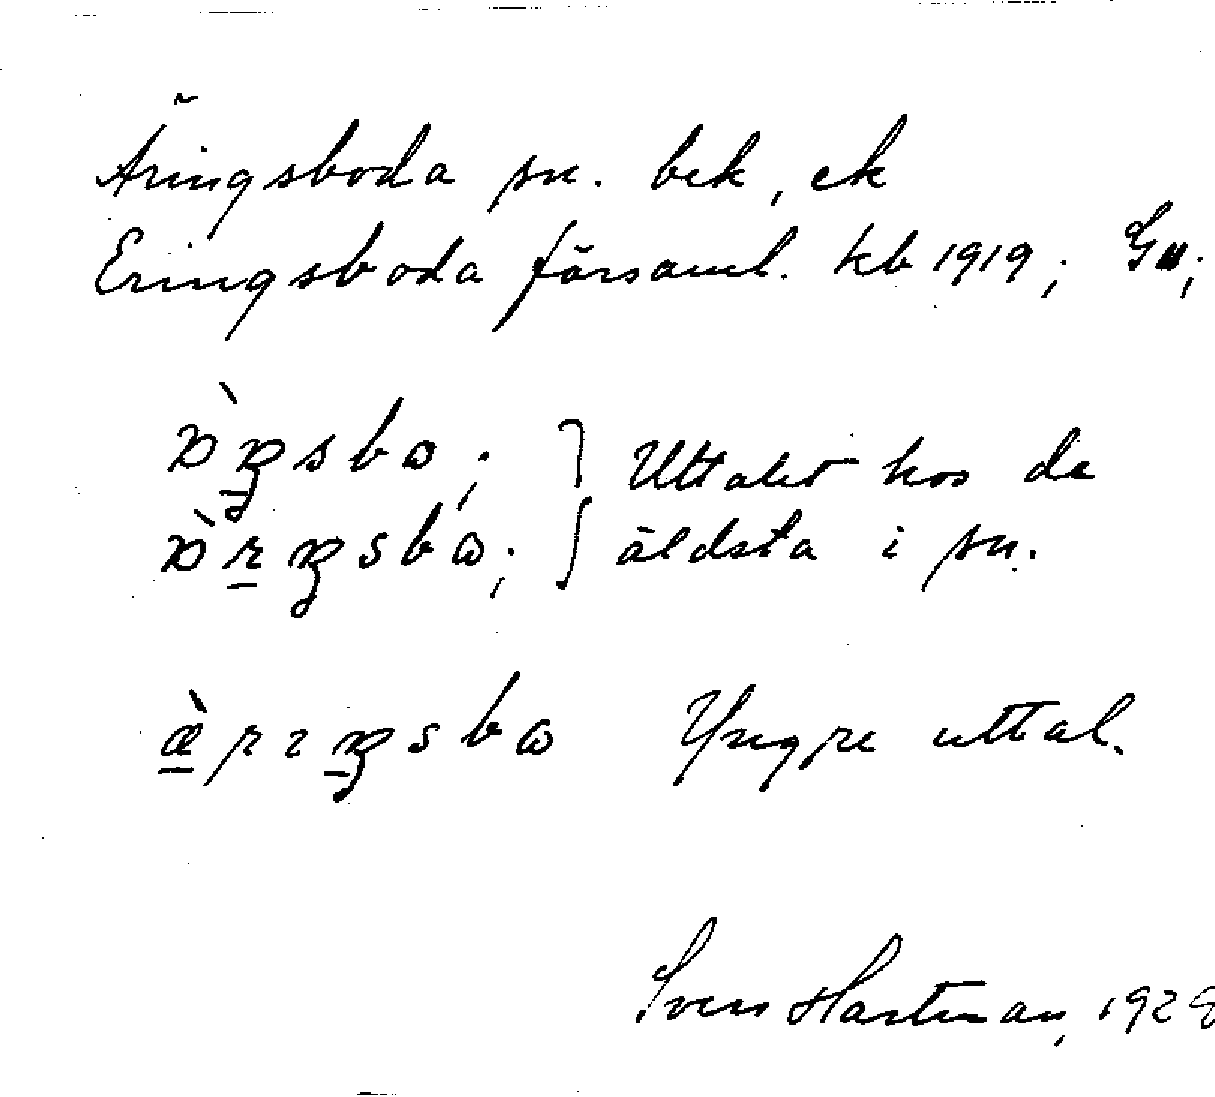 Äringsboda sn. bek, ek
Eringsboda församl. kb 1919; Gu;
Uttalet hos de
äldsta i sn.
Yngre uttal.
Sven Hartman, 1928